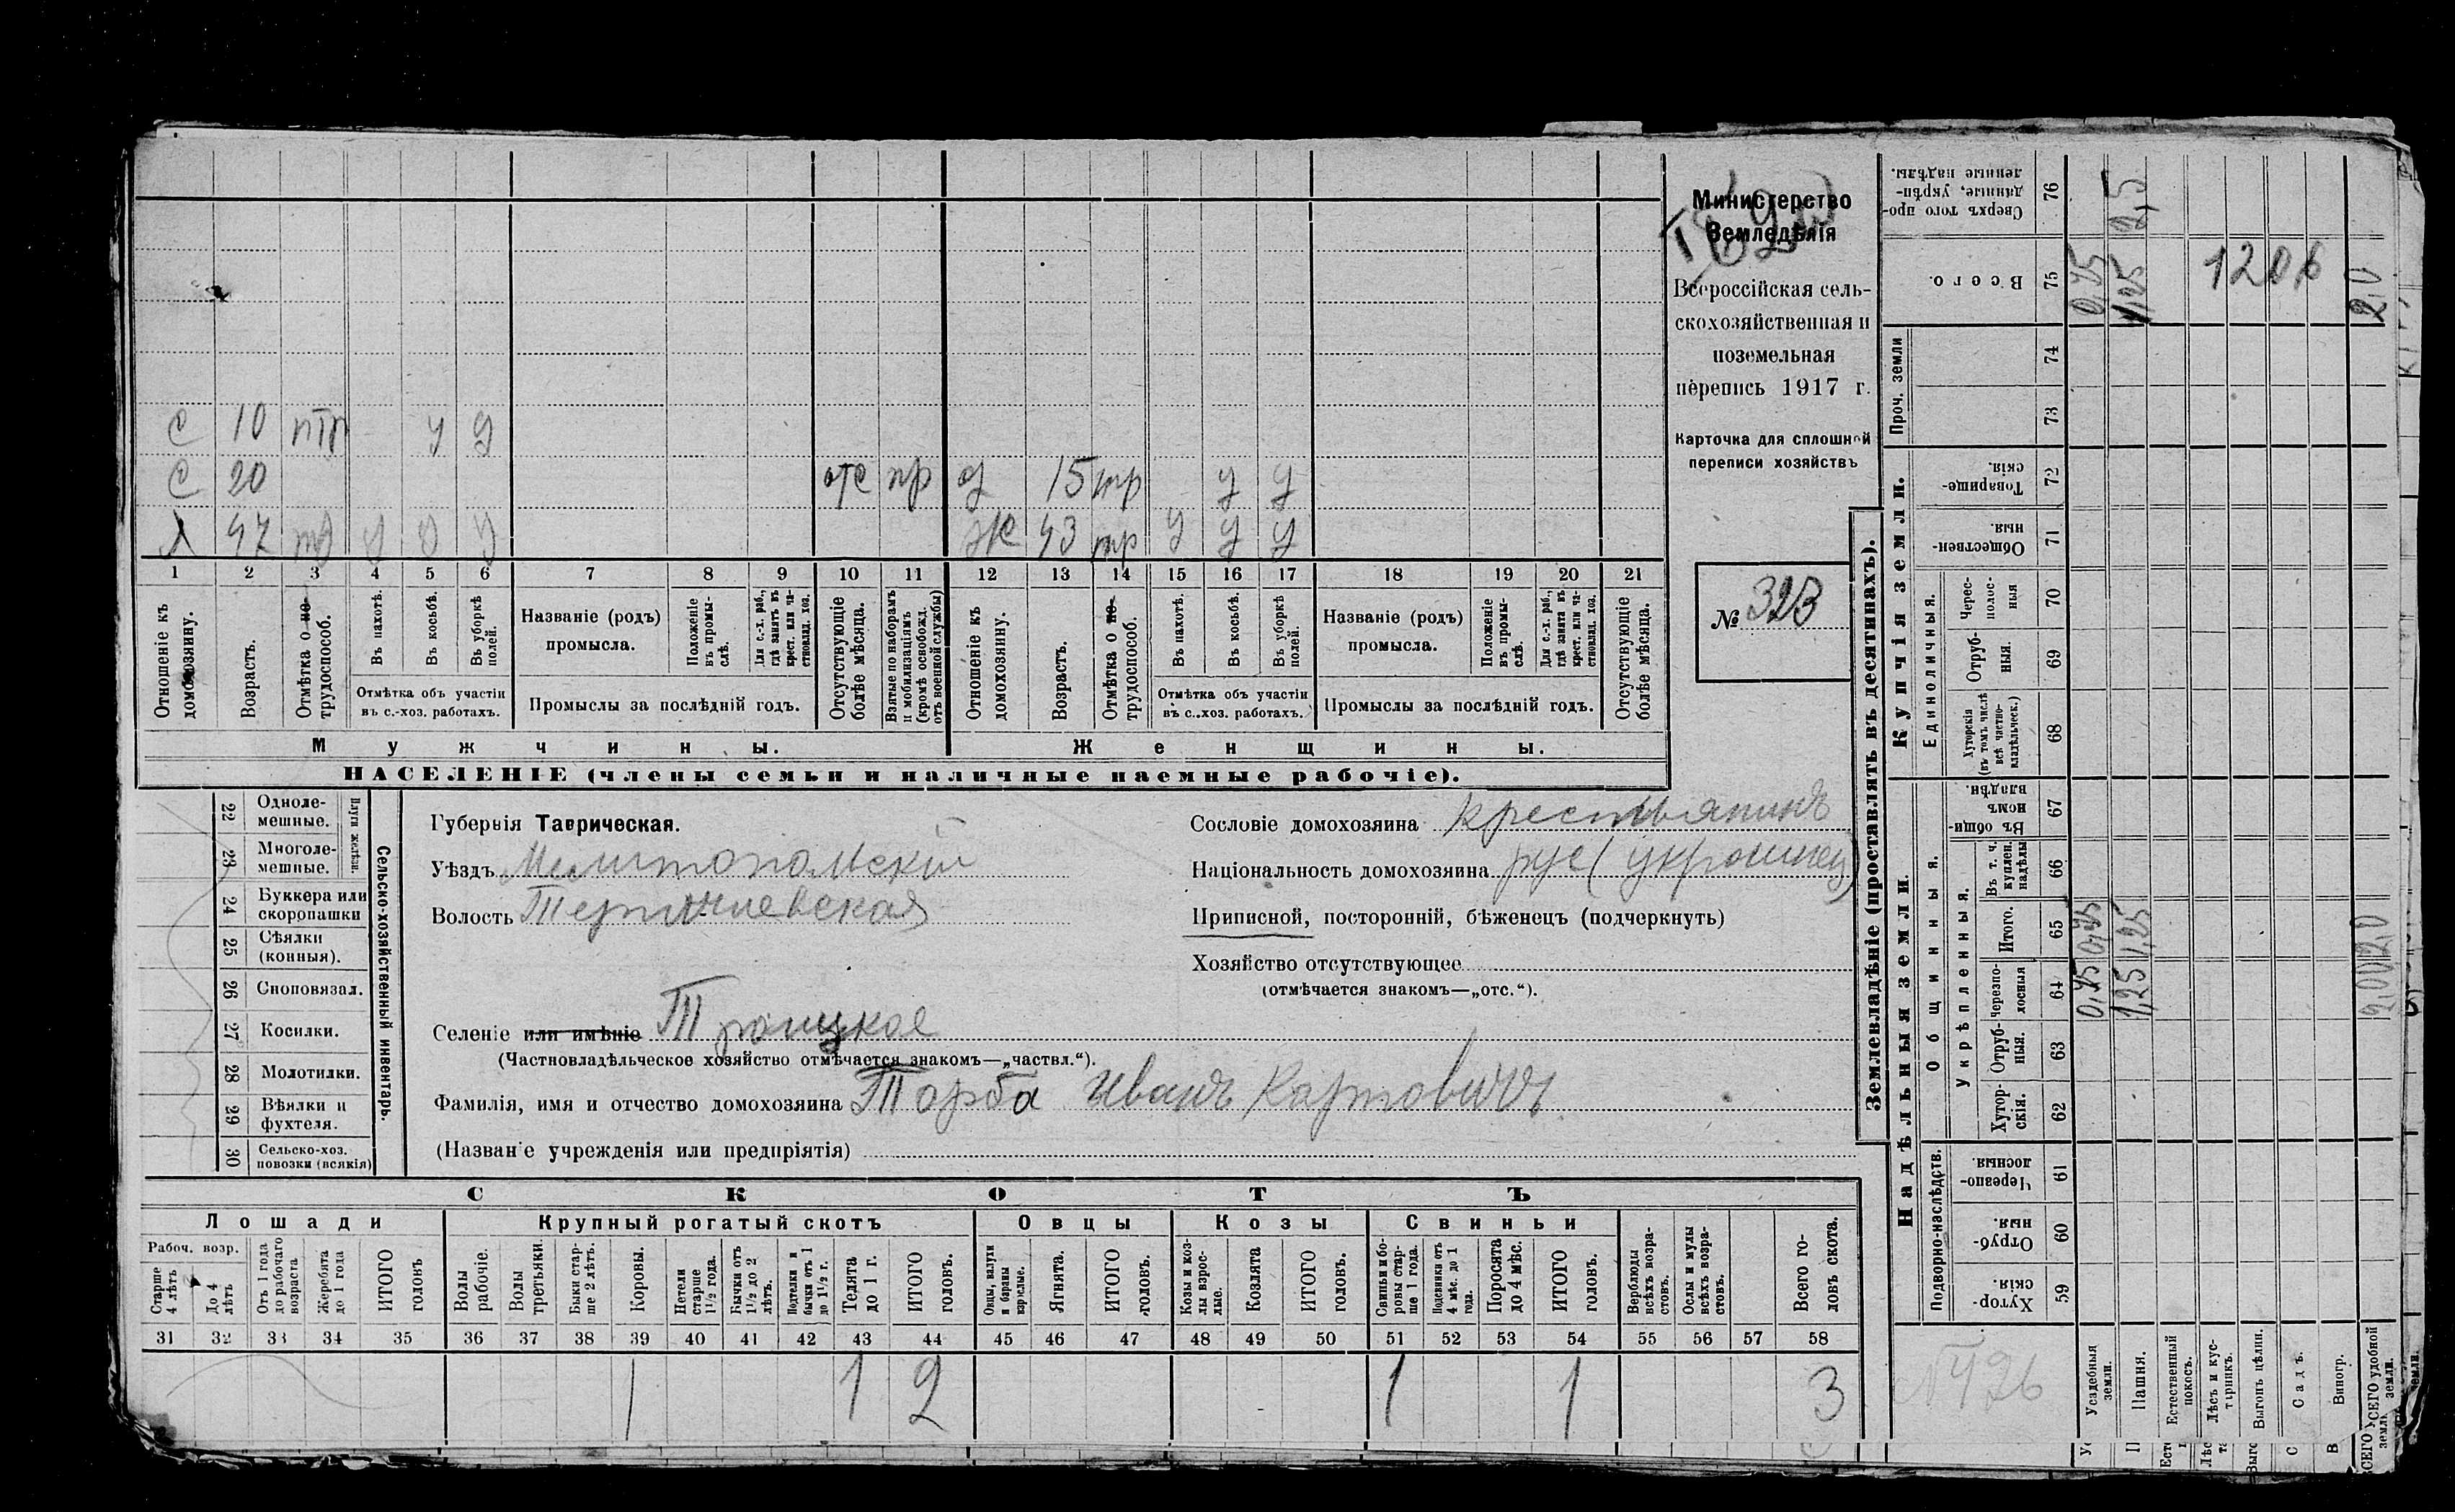 Министерство
Земледѣлія
Всероссійская сель-
скохозяйственная и
поземельная
перепись 1917 г.
Карточка для сплошной
переписи хозяйствъ
№ 323
С 10 птр у у
С 20 отс пр д 15 птр у у
Х 47 тр у у у Ж 43 тр у у у
1 2 3 4 5 6 7 8 9 10 11 12 13 14 15 16 17 18 19 20 21
Отношеніе къ домохозяину.
Возрастъ.
Отмѣтка о не-трудоспособ.
Въ пахотѣ.
Въ косьбѣ.
Въ уборкѣ полей.
Отмѣтка объ участіи
въ с.-хоз. работахъ.
Названіе (родъ)
промысла.
Положеніе въ промыслѣ.
Для с.-х. раб., гдѣ занятъ въ крест. или частновлад. хоз.
Промыслы за послѣдній годъ.
Отсутствующіе болѣе мѣсяца.
Взятые по наборамъ и мобилизаціямъ (кромѣ освобожд. отъ военной службы)
Отношеніе къ домохозяину.
Возрастъ.
Отмѣтка о не-трудоспособ.
Въ пахотѣ.
Въ косьбѣ.
Въ уборкѣ полей.
Отмѣтка объ участіи
въ с.-хоз. работахъ.
Названіе (родъ)
промысла.
Положеніе въ промыслѣ.
Для с.-х. раб., гдѣ занята въ крест. или частновлад. хоз.
Промыслы за послѣдній годъ.
Отсутствующіе болѣе мѣсяца.
Мужчины. Женщины.
НАСЕЛЕНІЕ (члены семьи и наличные наемные рабочіе).
Сельско-хозяйственный инвентарь.
Плуги желѣзн.
22 Одноле-мешные.
23 Многоле-мешные.
24 Буккера или скоропашки
25 Сѣялки (конныя).
26 Сноповязал.
27 Косилки.
28 Молотилки.
29 Вѣялки и фухтеля.
30 Сельско-хоз. повозки (всякія)
Губернія Таврическая.
Уѣздъ Мелитопольскій
Волость
Селеніе или имѣніе Троицкое
(Частновладѣльческое хозяйство отмѣчается знакомъ—„частвл.“).
Фамилія, имя и отчество домохозяина Торба Иванъ Карповичъ
(Названіе учрежденія или предпріятія)
Сословіе домохозяина крестьянинъ
Національность домохозяина рус (украинец)
Приписной, посторонній, бѣженецъ (подчеркнуть)
Хозяйство отсутствующее
(отмѣчается знакомъ—„отс.“).
СКОТЪ
Лошади Крупный рогатый скотъ Овцы Козы Свиньи
Рабоч. возр.
Старше 4 лѣтъ
До 4 лѣтъ
Отъ 1 года до рабочаго возраста
Жеребята до 1 года
ИТОГО головъ
Волы рабочіе.
Волы третьяки.
Быки стар-ше 2 лѣтъ.
Коровы.
Нетели старше 1½ года.
Бычки отъ 1½ до 2 лѣтъ.
Подтелки и бычки отъ 1 до 1½ г.
Телята до 1 г.
ИТОГО головъ.
Овцы, валухи и бараны взрослые.
Ягнята.
ИТОГО головъ.
Козы и коз-лы взрос-лые.
Козлята
ИТОГО головъ.
Свиньи и бо-ровы стар-ше 1 года.
Подсвинки отъ 4 мѣс. до 1 года.
Поросята до 4 мѣс.
ИТОГО головъ.
Верблюды всѣхъ возра-стовъ.
Ослы и мулы всѣхъ возра-стовъ.
Всего го-ловъ скота.
31 32 33 34 35 36 37 38 39 40 41 42 43 44 45 46 47 48 49 50 51 52 53 54 55 56 57 58
1 1 2 1 1 3
Землевладѣніе (проставлять въ десятинахъ).
Сверхъ того про-данные, укрѣп-ленные надѣлы. 76 2,5
Всего. 75 0,75 1,25 1206 2,0
Проч. земли 74 73
Купчія земли.
Товарище-скія. 72
Обществен-ныя. 71
Единоличныя.
Черес-полос-ныя 70
Отруб-ныя. 69
Хуторскія (въ томъ числѣ всѣ частно-владѣльческ.) 68
Надѣльныя земли.
Общинныя.
Въ общи-номъ владѣн. 67
Укрѣпленныя.
Въ т. ч. куплен. надѣлы 66
Итого. 65 0,75 1,25 2,0
Черезпо-лосныя 64 0,75 1,25 2,00
Отруб-ныя. 63
Хутор-скія. 62
Подворно-наслѣдств.
Черезпо-лосныя. 61
Отруб-ныя. 60
Хутор-скія. 59
Усадебныя земли.
Пашня.
Естественный покосъ.
Лѣсъ и кус-тарникъ.
Выгонъ цѣлин.
Садъ.
Виногр.
ВСЕГО удобной земли.